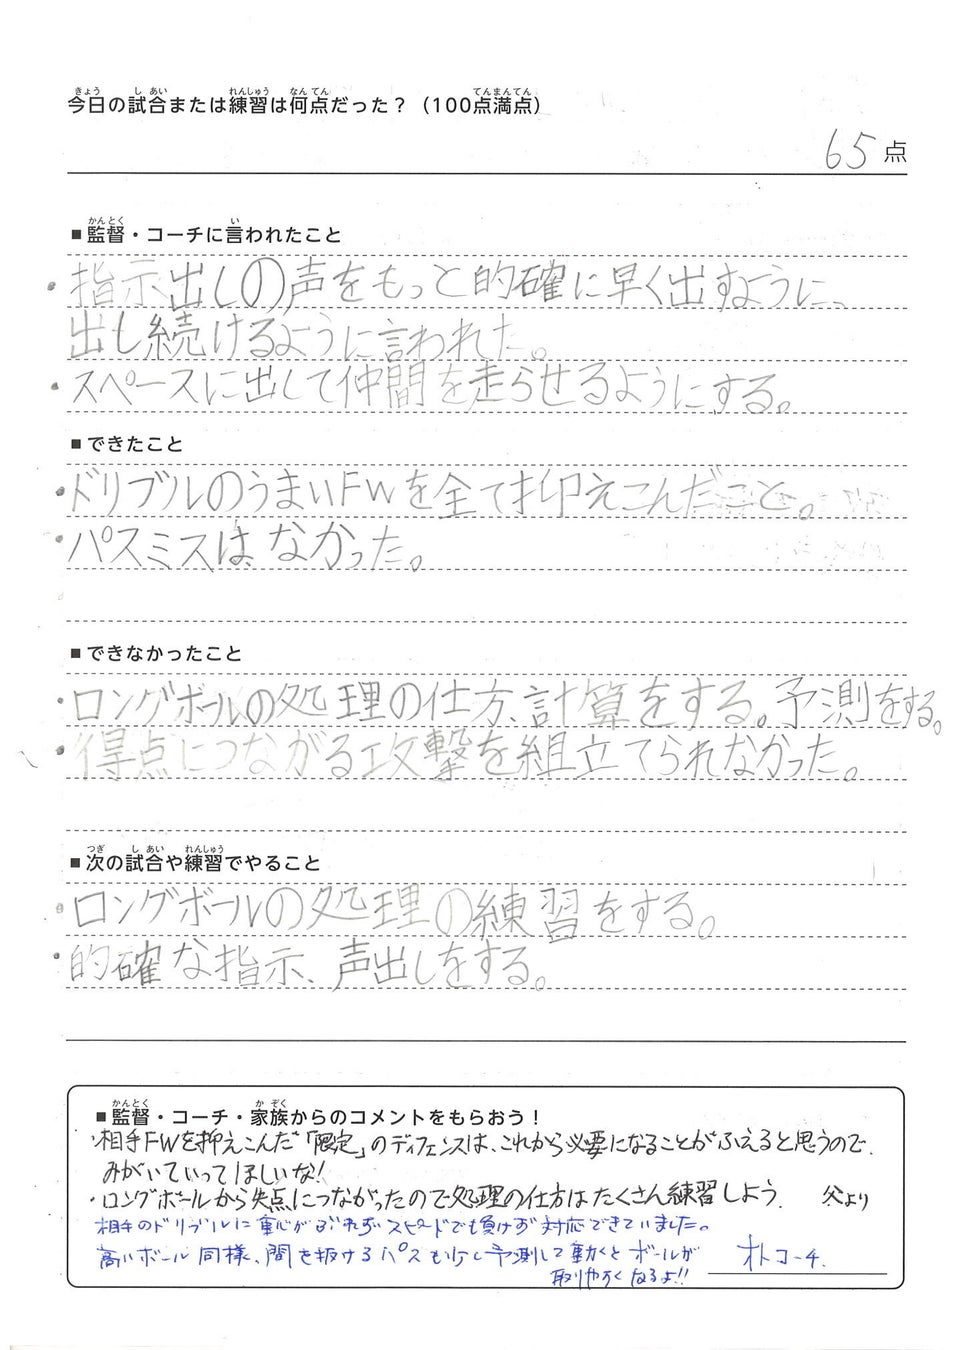 今日の試合または練習は何点だった？（100点満点）
65点
■監督・コーチに言われたこと
・指示出しの声をもっと的確に早く出すように、
出し続けるように言われた。
・スペースに出して仲間を走らせるようにする。
■できたこと
・ドリブルのうまいFWを全て抑えこんだこと。
・パスミスはなかった。
■できなかったこと
・ロングボールの処理の仕方、計算をする。予測をする。
・得点につながる攻撃を組立てられなかった。
■次の試合や練習でやること
・ロングボールの処理の練習をする。
・的確な指示、声出しをする。
■監督・コーチ・家族からのコメントをもらおう！
・相手FWを抑えこんだ「限定」のディフェンスは、これから必要になることがふえると思うので、
みがいていってほしいな！
・ロングボールから失点につながったので処理の仕方はたくさん練習しよう。 父より
相手のドリブルに重心がぶれずスピードでも負けず対応できていました。
高いボール同様、間を抜けるパスも少し予測して動くとボールが
取りやすくなるよ!! オトコーチ.